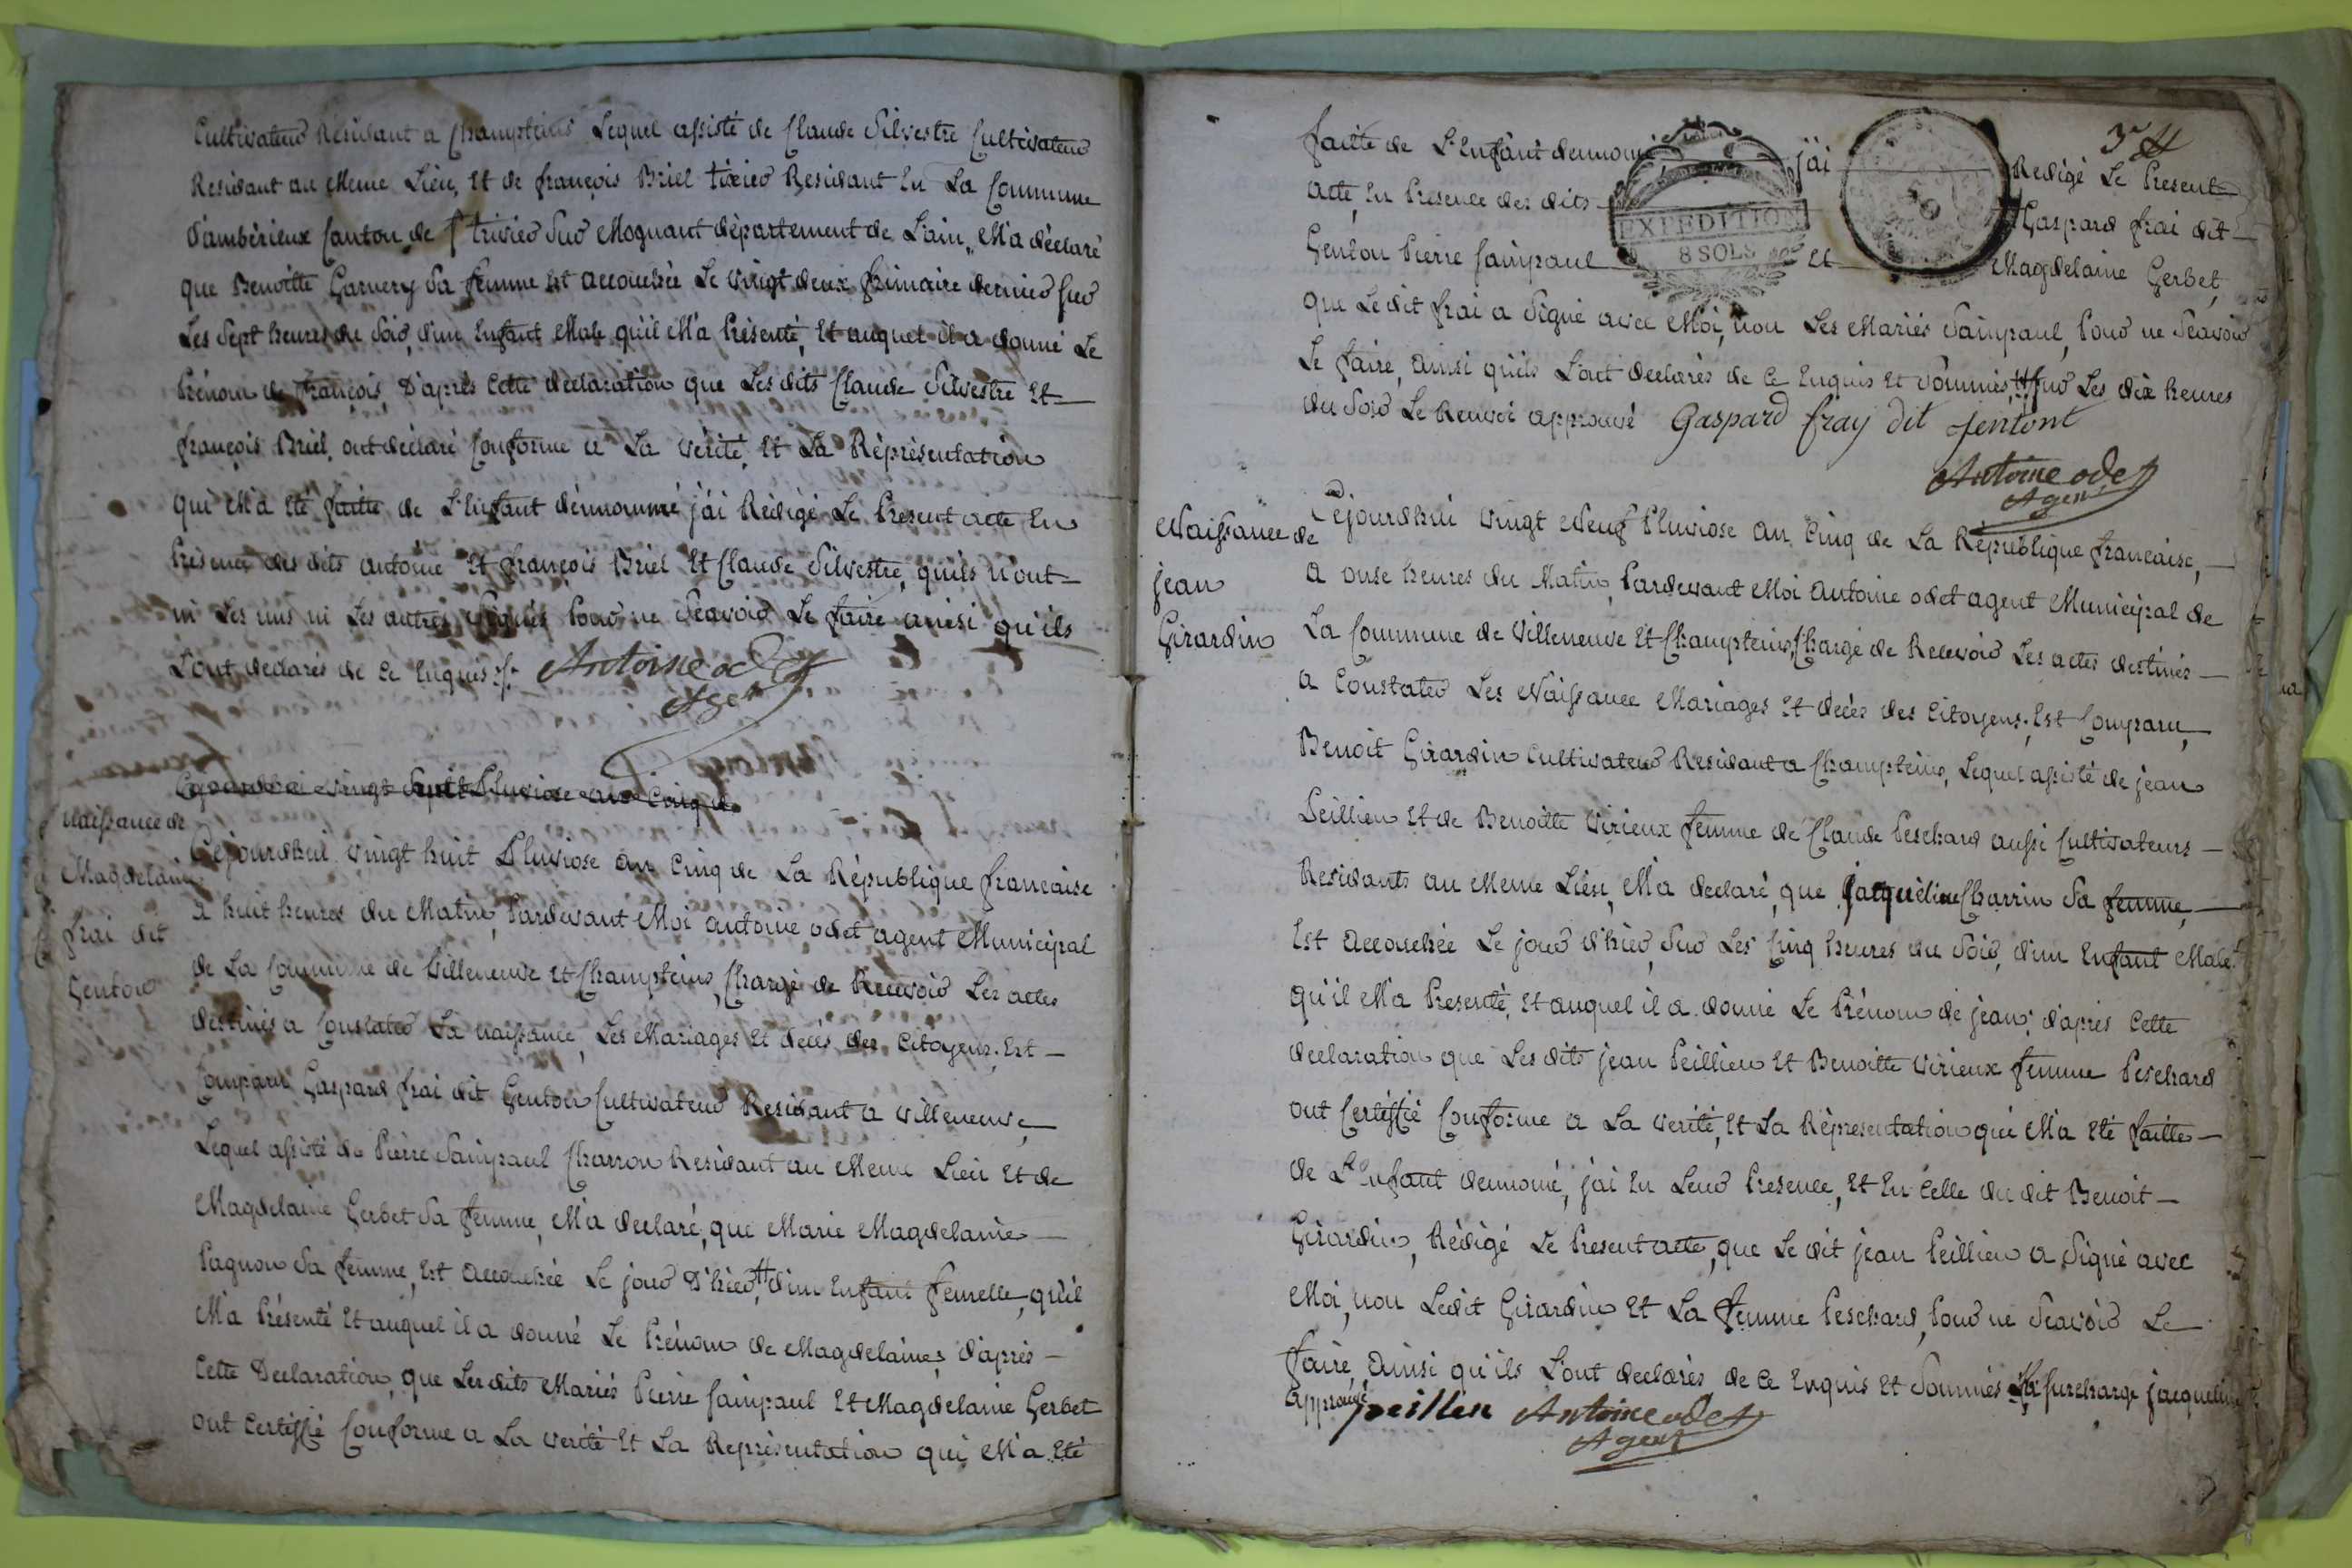 Cultivateur Residant a Champteins Lequel assisté de Claude Silvestre Cultivateur
Residant au Meme Lieu, Et de françois Briel tixier Residant En La Commune
d'ambérieux Canton de St trivier Sur Mognant département de L'ain, M'a déclaré
que Benoitte Garnery Sa femme Est accouchée Le vingt deux frimaire dernier sur
Les Sept heures du Soir, d'un Enfant Male qu'il M'a Présenté, Et auquel il a donné Le
Prénom de françois, D'après Cette declaration que Les dits Claude Silvestre Et
françois Briel, ont déclaré Conforme a La vérité, Et La Réprésentation
qui M'a Eté faitte de L'Enfant dénnommé j'ai Rédigé Le Present acte En
Présence des dits antoine Et françois Briel Et Claude Silvestre, qu'ils n'ont
ni Les uns ni Les autres Signés Pour ne Scavoir Le faire ainsi qu'ils
L'ont declarés de Ce Enquis ./. Antoine odet
Agent
Cejourdhui vingt Sept Pluviose an Cinq de
naissance de
Magdelaine
frai dit
Genton
Cejourdhui vingt huit Pluviose an Cinq de La République francaise
a huit heures du Matin, Pardevant Moi antoine odet agent Municipal
de La Commune de Villeneuve Et Champteins, Chargé de Recevoir Les actes
destinés a Constater La naissance, Les Mariages Et décès des Citoyens; Est
Comparu Gaspard frai dit Genton Cultivateur Residant a villeneuve
Lequel assisté de Pierre Sainpaul Charron Residant au Meme Lieu Et de
Magdelaine Gerbet Sa femme, M'a declaré, que Marie Magdelaine
Pagnon Sa femme, Est accouchée Le jour D'hier, # d'un Enfant femelle, qu'il
M'a Présenté Et auquel il a donné Le Prénom de Magdelaine, d'après
Cette Declaration, que Les dits Mariés Pierre Sainpaul Et Magdelaine Gerbet
ont Certiffié Conforme a La verité Et La Représentation qui M'a Eté
3 #
faitte de L'Enfant dennomé j'ai Redigé Le Present
acte, En Présence des dits Gaspard frai dit
Genton Pierre Sainpaul Et Magdelaine Gerbet,
EXPEDITION
8 SOLS
que Le dit frai a Signé avec Moi, non Les Mariés Sainpaul, Pour ne Scavoir
Le faire, ainsi qu'ils L'ont declarés de Ce Enquis Et Sommés, # Sur Les dix heures
du Soir Le Renvoi approuvé Gaspard fray dit jentont
Antoine odet
Agent
Naissance de
jean
Girardin
Cejourdhui vingt Neuf Pluviose an Cinq de La République francaise,
a onse heures du Matin, Pardevant Moi antoine odet agent Municipal de
La Commune de Villeneuve Et Champteins, Chargé de Recevoir Les actes destinés
a Constater Les Naissance Mariages Et décès des Citoyens; Est Comparu,
Benoit Girardin Cultivateur Residant a Champteins, Lequel assisté de jean
Peillieu Et de Benoitte Virieux femme de Claude Peschard aussi Cultivateurs
Residants au Meme Lieu, M'a declaré, que jacqueline Charrin Sa femme,
Est accouchée Le jour d'hier, Sur Les Cinq heures du Soir, d'un Enfant Male
qu'il M'a Presenté, Et auquel il a donné Le Prénom de jean; d'après Cette
declaration que Les dits jean Peillieu Et Benoitte Virieux femme Peschard
ont Certiffié Conforme a La verité, Et La Représentation qui M'a Eté faitte
de L'Enfant dennomé, j'ai En Leur Presence, Et En Celle du dit Benoit
Girardin, Rédigé Le Present acte, que Le dit jean Peillieu a Signé avec
Moi, non Ledit Girardin Et La femme Peschard, Pour ne Scavoir Le
faire, ainsi qu'ils L'ont declarés de Ce Enquis Et Sommés La surcharge jacqueline
approuvé peilleu Antoine odet
Agent